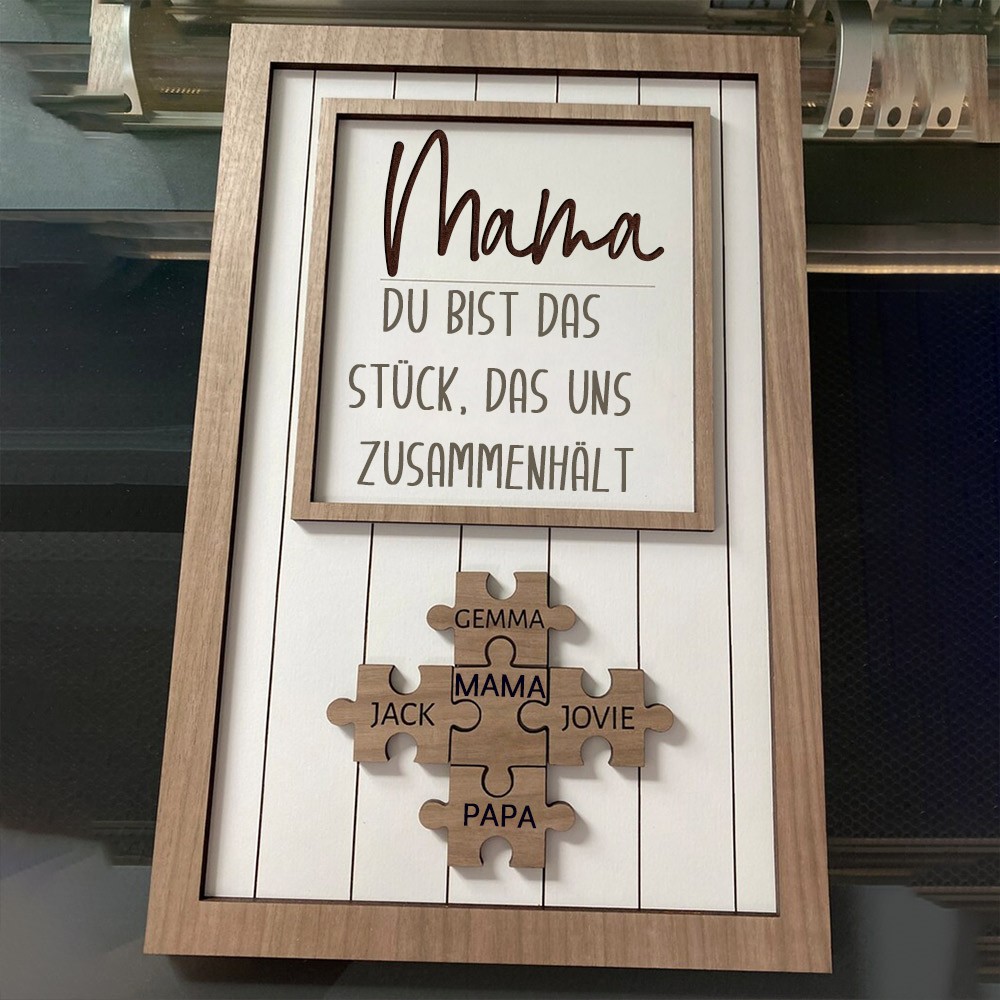 Mama
DU BIST DAS
STÜCK, DAS UNS
ZUSAMMENHÄLT
GEMMA
MAMA
JACK
JOVIE
PAPA